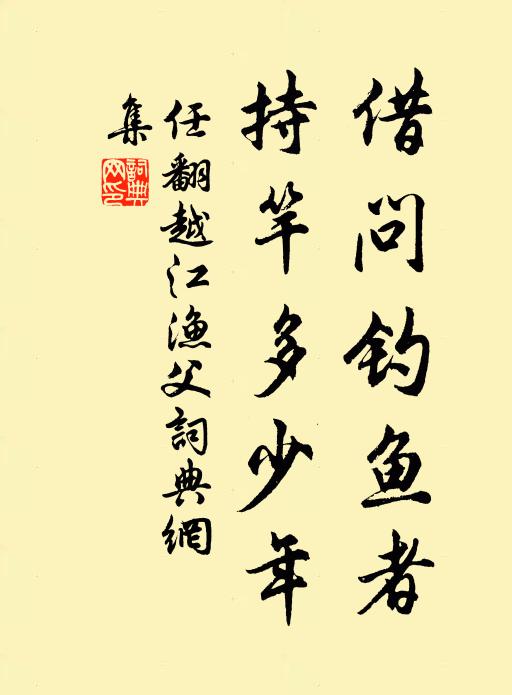 借问钓鱼者
持竿多少年
任翻越江渔父詞典網
集
詞典
网印